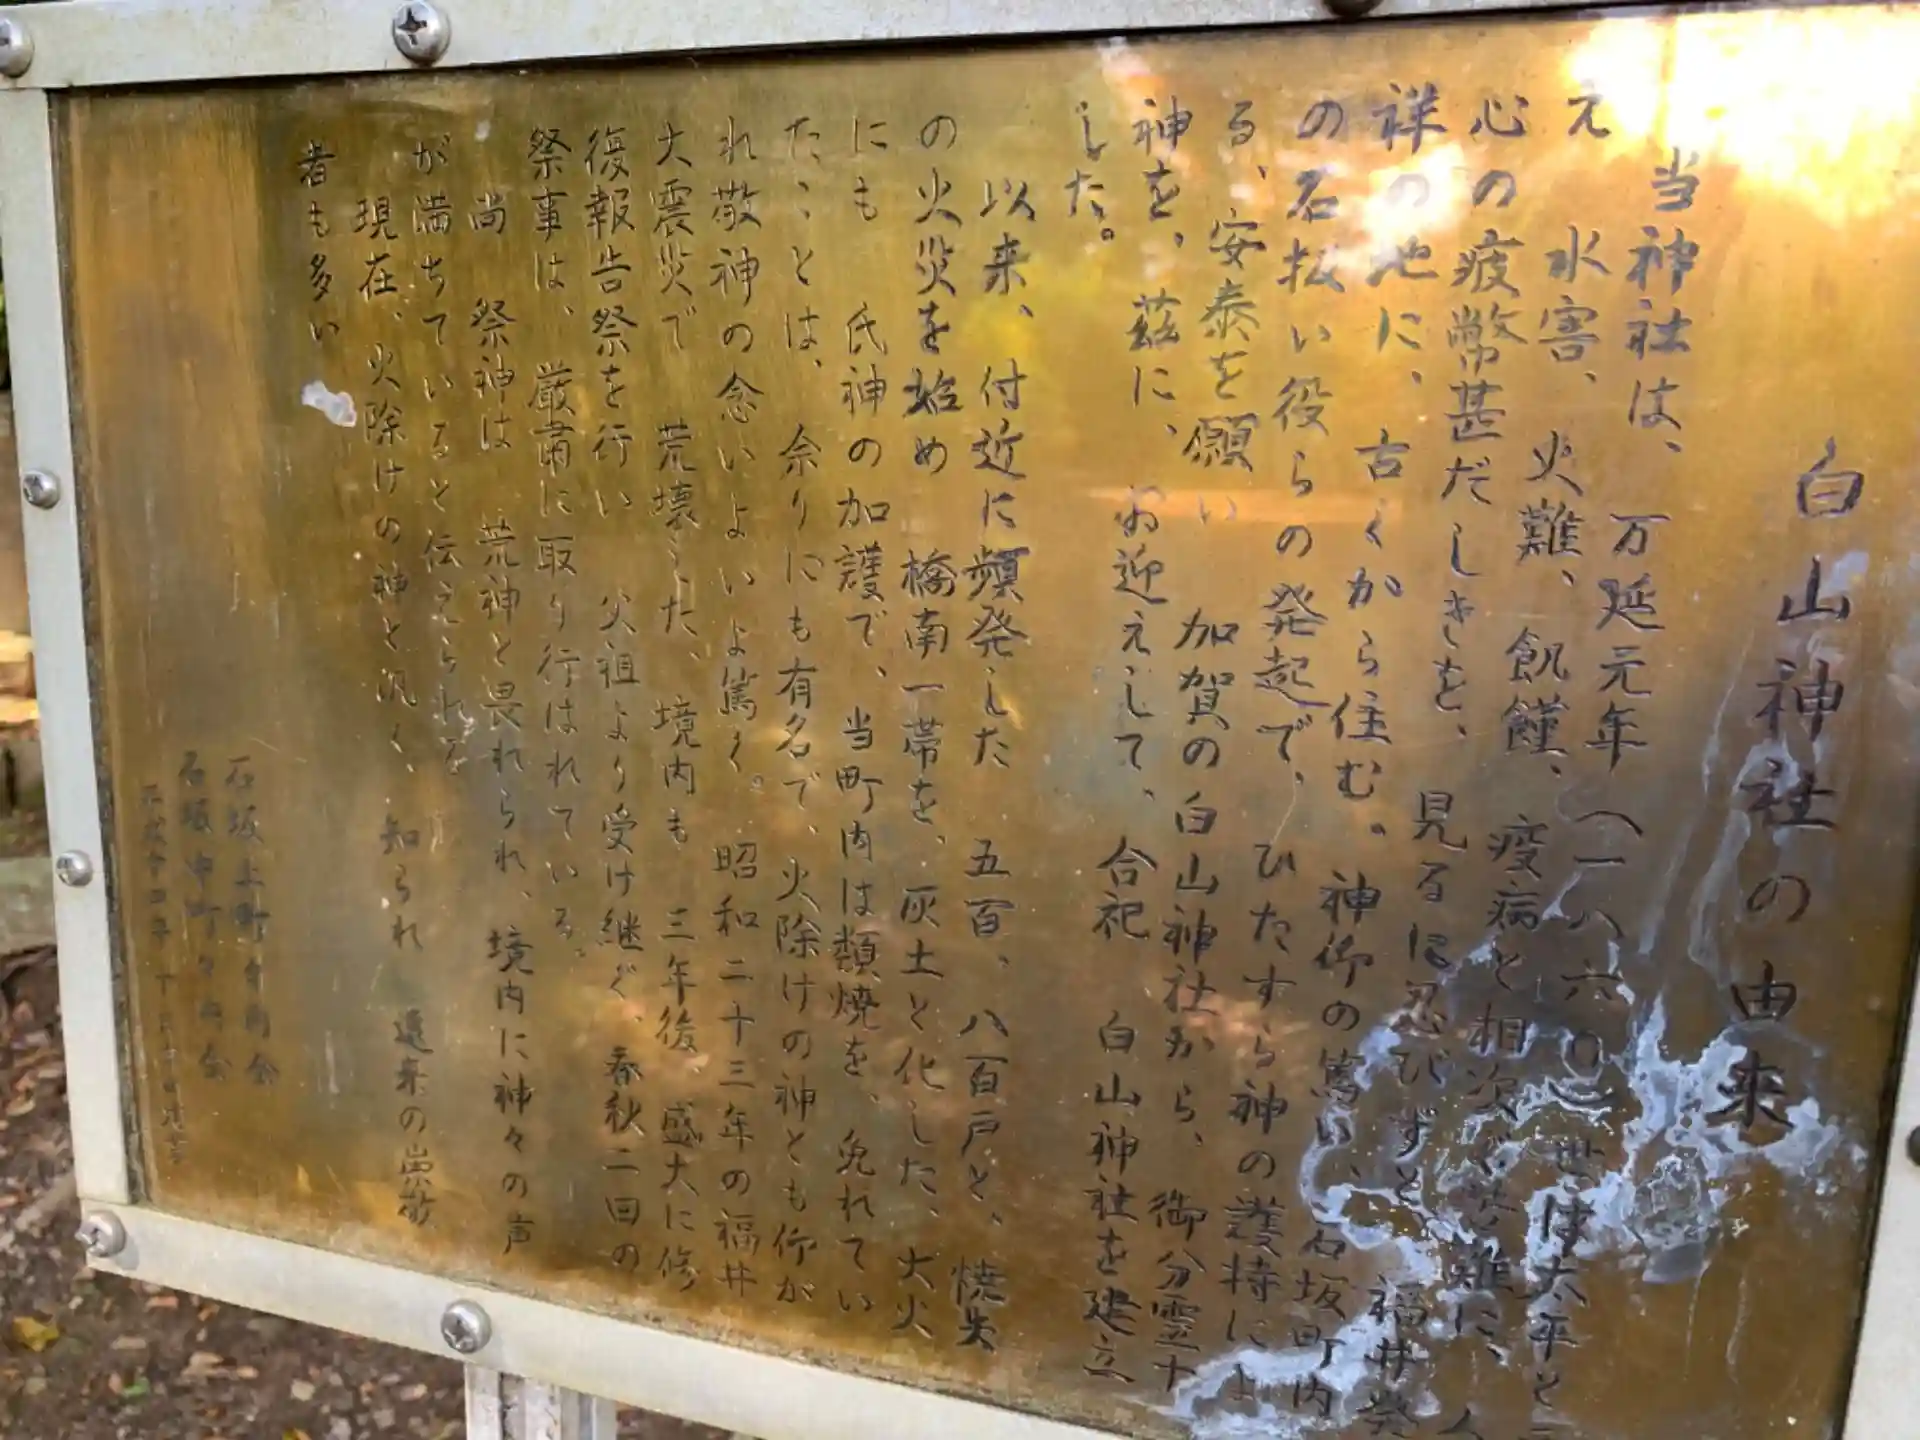 白山神社の由来
当神社は、万延元年(一八六〇)世は太平と
え 水害、火難、飢饉、疫病と相次ぐ苦難に、人
心の疲弊甚だしきを、見るに忍びずと、福井発
祥の地に、古くから住む。神仰の篤い、石坂町内
の石坂い役らの発起で、ひたすら神の護持によ
る、安泰を願い 加賀の白山神社から、御分霊十
神を、茲に、お迎えして、合祀 白山神社を建立
した。
以来、付近に頻発した 五百、八百戸と、焼失
の火災を始め 橋南一帯を、灰土と化した、大火
にも 氏神の加護で、当町内は類焼を、免れてい
たことは、余りにも有名で、火除けの神とも仰が
れ敬神の念いよいよ篤く。昭和二十三年の福井
大震災で 荒壊した、境内も 三年後、盛大に修
復報告祭を行い 父祖より受け継ぐ、春秋二回の
祭事は、厳粛に取り行はれている。
尚 祭神は 荒神と畏れられ、境内に神々の声
が満ちていると伝えられる
現在、火除けの神と汎く、知られ 遠来の崇敬
者も多い
石坂上町々内会
石坂中町々内会